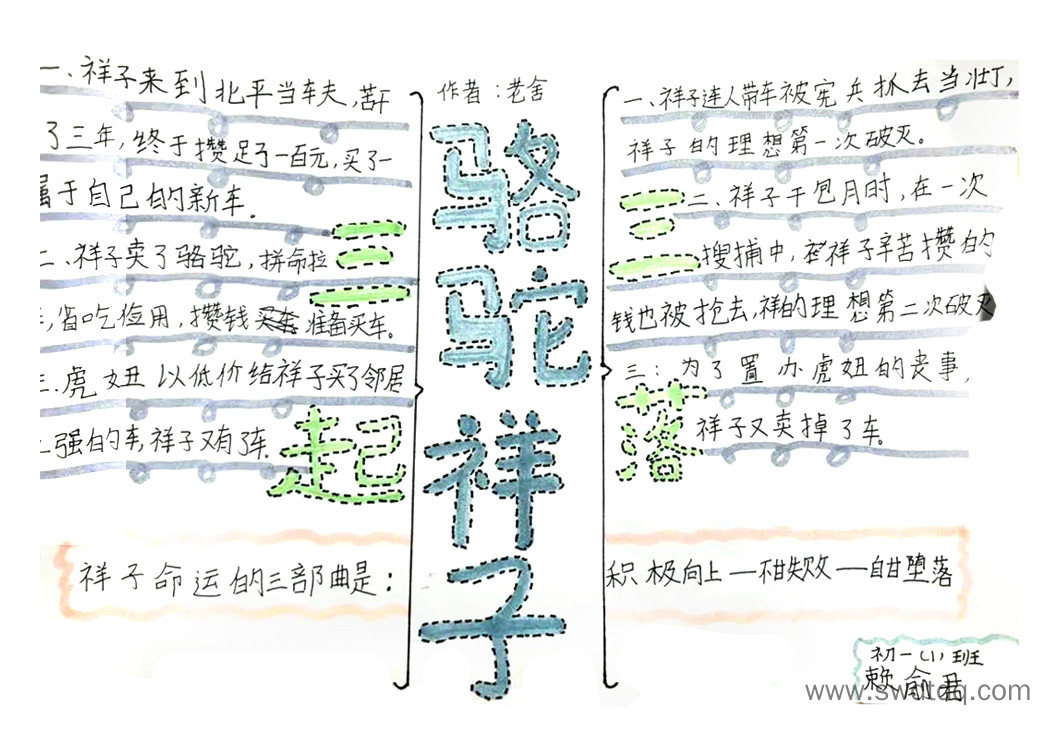 作者：老舍
骆驼祥子
三起
一、祥子来到北平当车夫，苦干
了三年，终于攒足了一百元，买了一
属于自己的新车。
二、祥子卖了骆驼，拼命拉
省吃俭用，攒钱准备买车。
三、虎妞以低价给祥子买了邻居
二强的车，祥子又有了车。
三落
一、祥子连人带车被宪兵抓去当壮丁，
祥子的理想第一次破灭。
二、祥子干包月时，在一次
搜捕中，祥子辛苦攒的
钱也被抢去，祥的理想第二次破灭
三：为了置办虎妞的丧事，
祥子又卖掉了车。
祥子命运的三部曲是：
积极向上—不甘失败—自甘堕落
初一（1）班
赖俞君